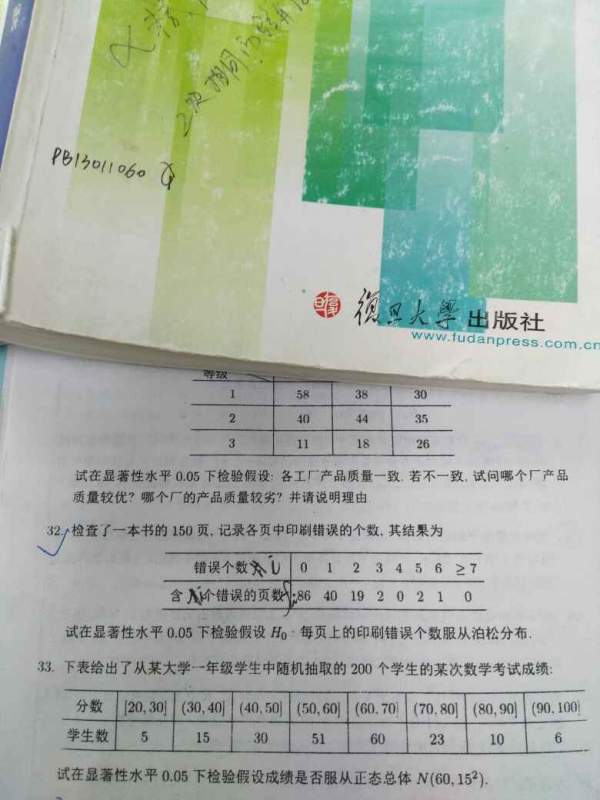 2次
PB13011060
復旦大學 出版社
www.fudanpress.com.cn
等级
1 58 38 30
2 40 44 35
3 11 18 26
试在显著性水平 0.05 下检验假设: 各工厂产品质量一致. 若不一致, 试问哪个厂产品
质量较优? 哪个厂的产品质量较劣? 并请说明理由
32. 检查了一本书的 150 页, 记录各页中印刷错误的个数, 其结果为
错误个数 i 0 1 2 3 4 5 6 ≥7
含 i 个错误的页数 86 40 19 2 0 2 1 0
试在显著性水平 0.05 下检验假设 H₀: 每页上的印刷错误个数服从泊松分布.
33. 下表给出了从某大学一年级学生中随机抽取的 200 个学生的某次数学考试成绩:
分数 [20,30] (30,40] (40,50] (50,60] (60,70] (70,80] (80,90] (90,100]
学生数 5 15 30 51 60 23 10 6
试在显著性水平 0.05 下检验假设成绩是否服从正态总体 N(60,15²).